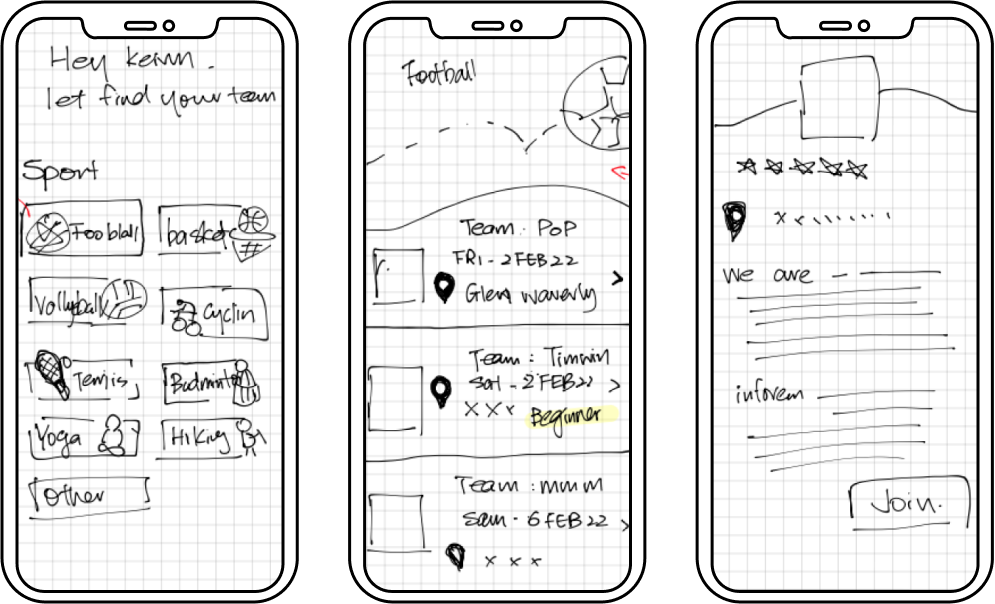 Hey kevin.
let find your team
Sport
Fooblall
basket
Vollyball
Cyclin
Tennis
Badminton
Yoga
Hiking
Other
Football
Team : PoP
FRI - 2 FEB 22
Glen waverly
Team : Timmin
Sat - 2 FEB 22
x x x Beginner
Team : mmm
Sun - 6 FEB 22
x x x
We are
inforem
Join.